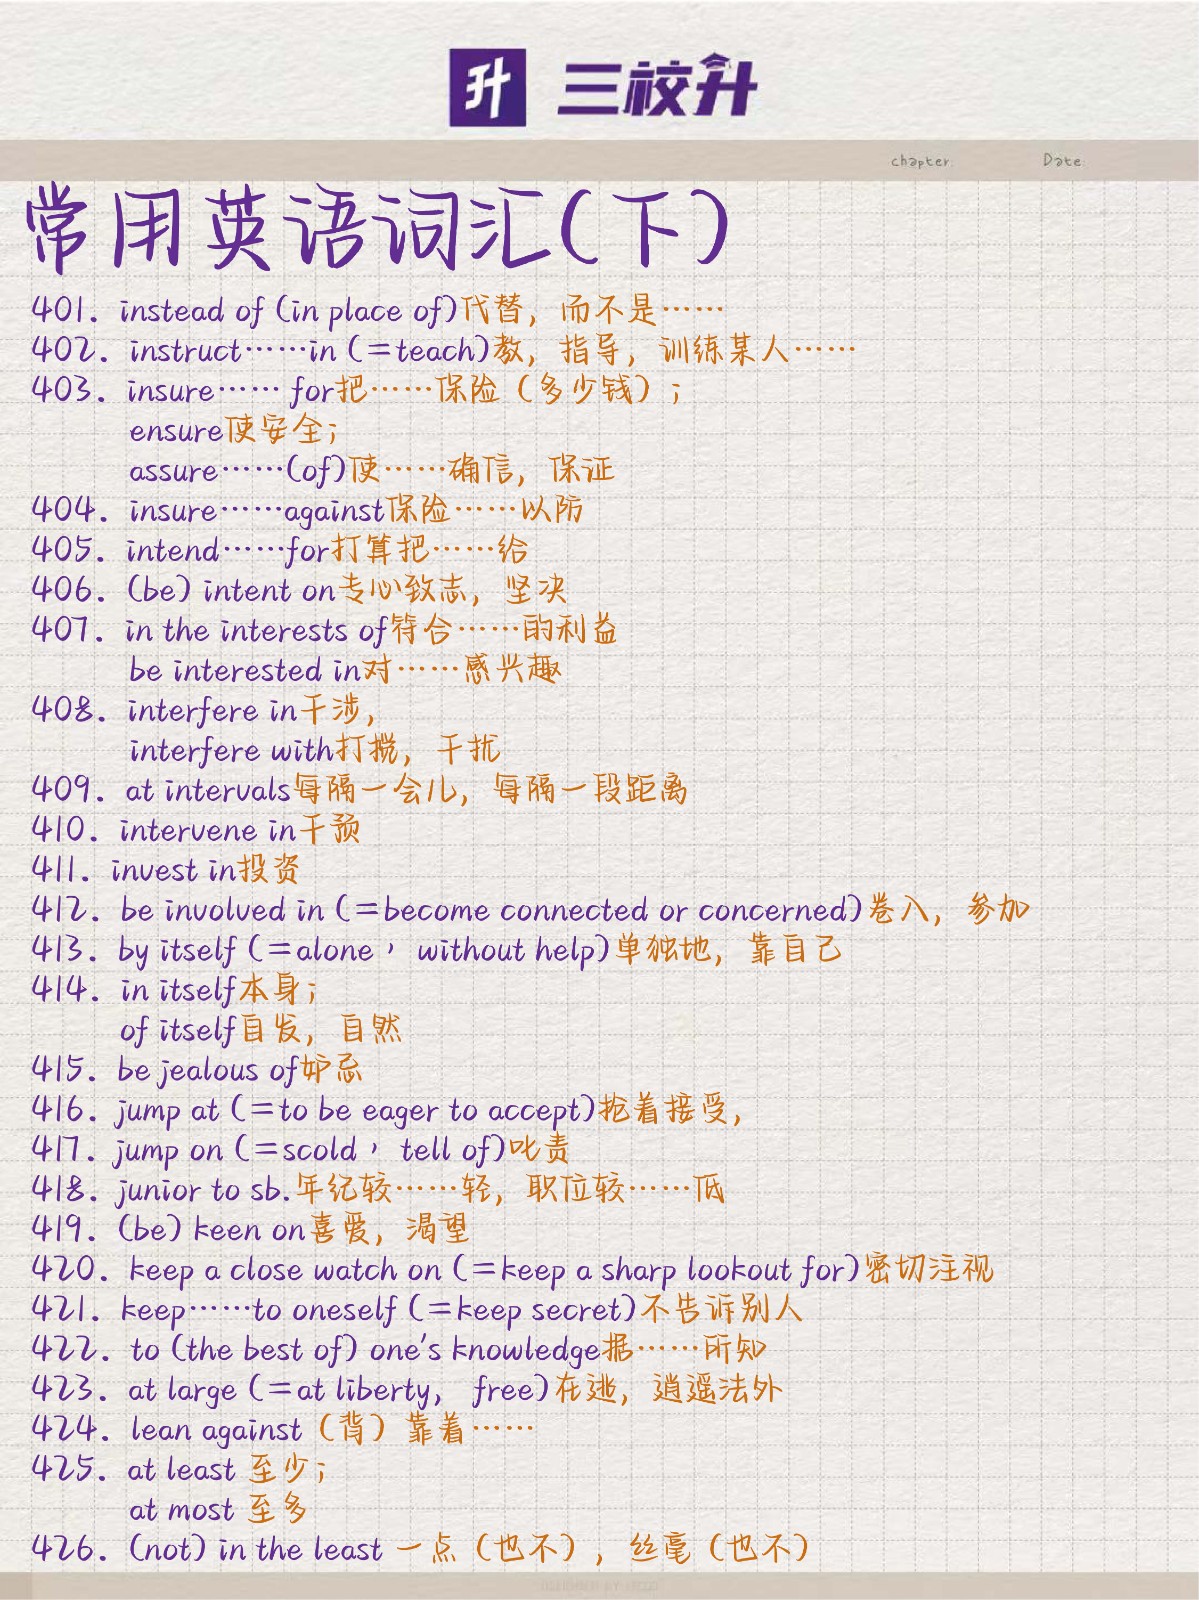 升 三校升
chapter: Date:
常用英语词汇(下)
401. instead of (in place of)代替，而不是……
402. instruct……in (=teach)教，指导，训练某人……
403. insure…… for把……保险（多少钱）;
ensure使安全;
assure……(of)使……确信，保证
404. insure……against保险……以防
405. intend……for打算把……给
406. (be) intent on专心致志，坚决
407. in the interests of符合……的利益
be interested in对……感兴趣
408. interfere in干涉，
interfere with打搅，干扰
409. at intervals每隔一会儿，每隔一段距离
410. intervene in干预
411. invest in投资
412. be involved in (=become connected or concerned)卷入，参加
413. by itself (=alone，without help)单独地，靠自己
414. in itself本身;
of itself自发，自然
415. be jealous of妒忌
416. jump at (=to be eager to accept)抢着接受，
417. jump on (=scold，tell of)叱责
418. junior to sb.年纪较……轻，职位较……低
419. (be) keen on喜爱，渴望
420. keep a close watch on (=keep a sharp lookout for)密切注视
421. keep……to oneself (=keep secret)不告诉别人
422. to (the best of) one's knowledge据……所知
423. at large (=at liberty, free)在逃，逍遥法外
424. lean against（背）靠着……
425. at least 至少;
at most 至多
426. (not) in the least 一点（也不），丝毫（也不）